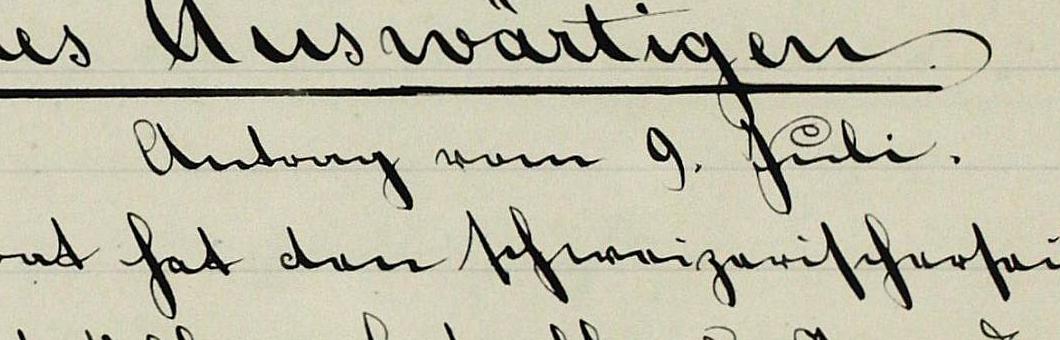 des Auswärtigen.
Antrag vom 9. Juli.
rat hat den schweizerischersei